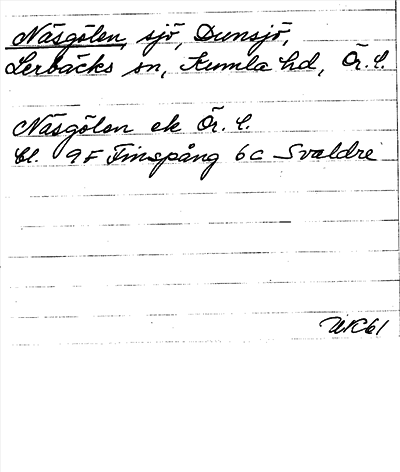 Näsgölen, sjö, Dunsjö,
Lerbäcks sn, Kumla hd, Ör. l.
Näsgölen ek Ör. l.
bl. 9F Finspång 6c Svaldre
UK61